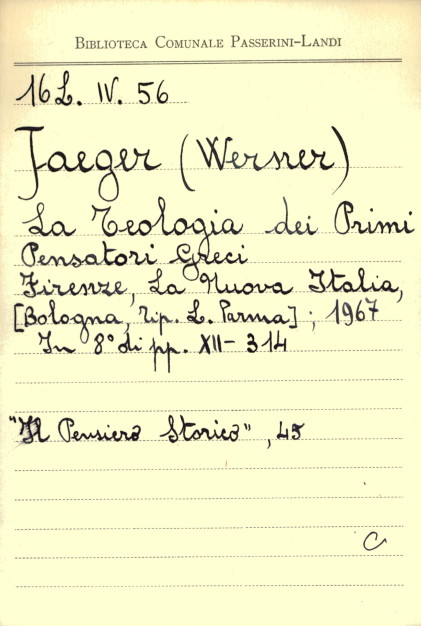 BIBLIOTECA COMUNALE PASSERINI-LANDI
16 L. IV. 56
Jaeger (Werner)
La Teologia dei Primi
Pensatori Greci
Firenze, La Nuova Italia,
[Bologna, tip. L. Parma] ; 1967
In 8° di pp. XII- 314
"Il Pensiero Storico" , 45
C